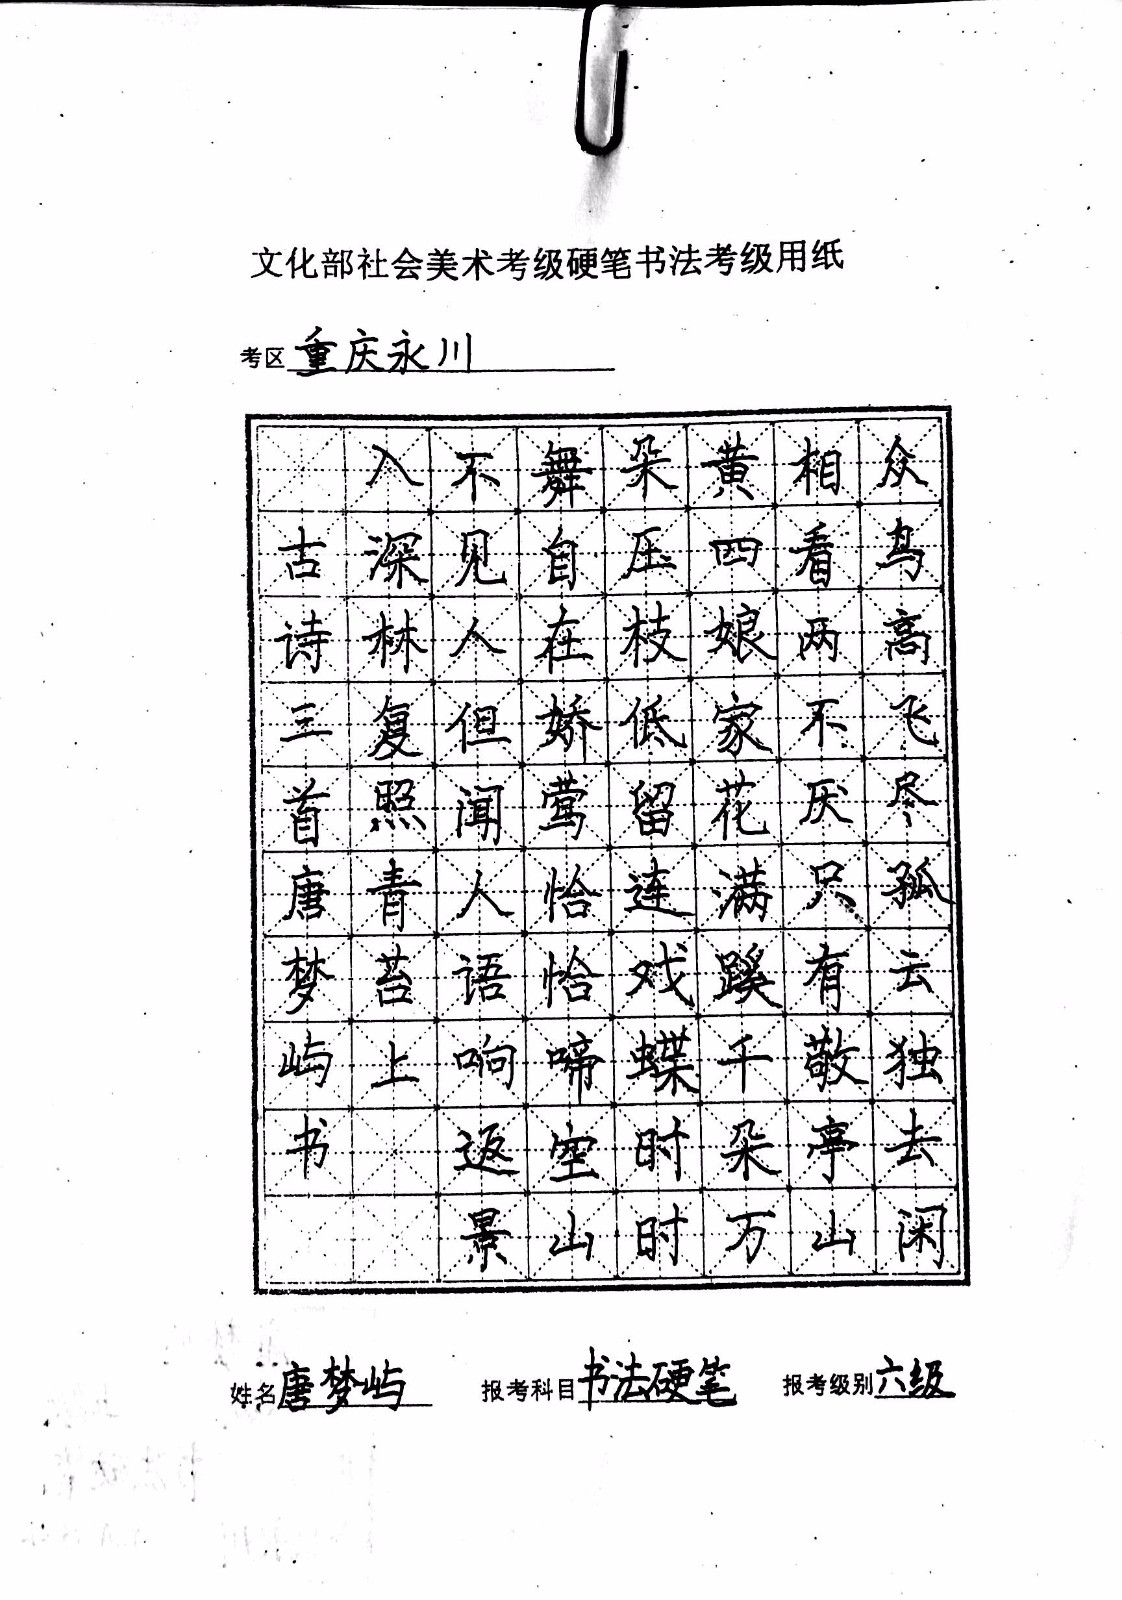 文化部社会美术考级硬笔书法考级用纸
考区 重庆永川
众鸟高飞尽孤云独去闲
相看两不厌只有敬亭山
黄四娘家花满蹊千朵万
朵压枝低留连戏蝶时时
舞自在娇莺恰恰啼空山
不见人但闻人语响返景
入深林复照青苔上
古诗三首唐梦屿书
姓名 唐梦屿 报考科目 书法硬笔 报考级别 六级